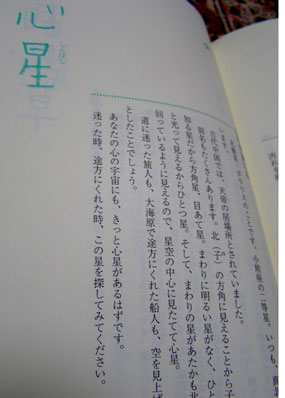 心星
のことです。小熊座の二等星。いつも、
います。
古代中国では、天帝の居場所とされていました。
別名もたくさんあります。北(子)の方角に見えることから子
知る星だから方角星、目あて星。まわりに明るい星がなく、ひと
と光って見えるからひとつ星。そして、まわりの星があたかも北
回っているように見えるので、星空の中心に見たてて心星。
道に迷った旅人も、大海原で途方にくれた船人も、空を見上げ
としたことでしょう。
あなたの心の宇宙にも、きっと心星があるはずです。
迷った時、途方にくれた時、この星を探してみてください。